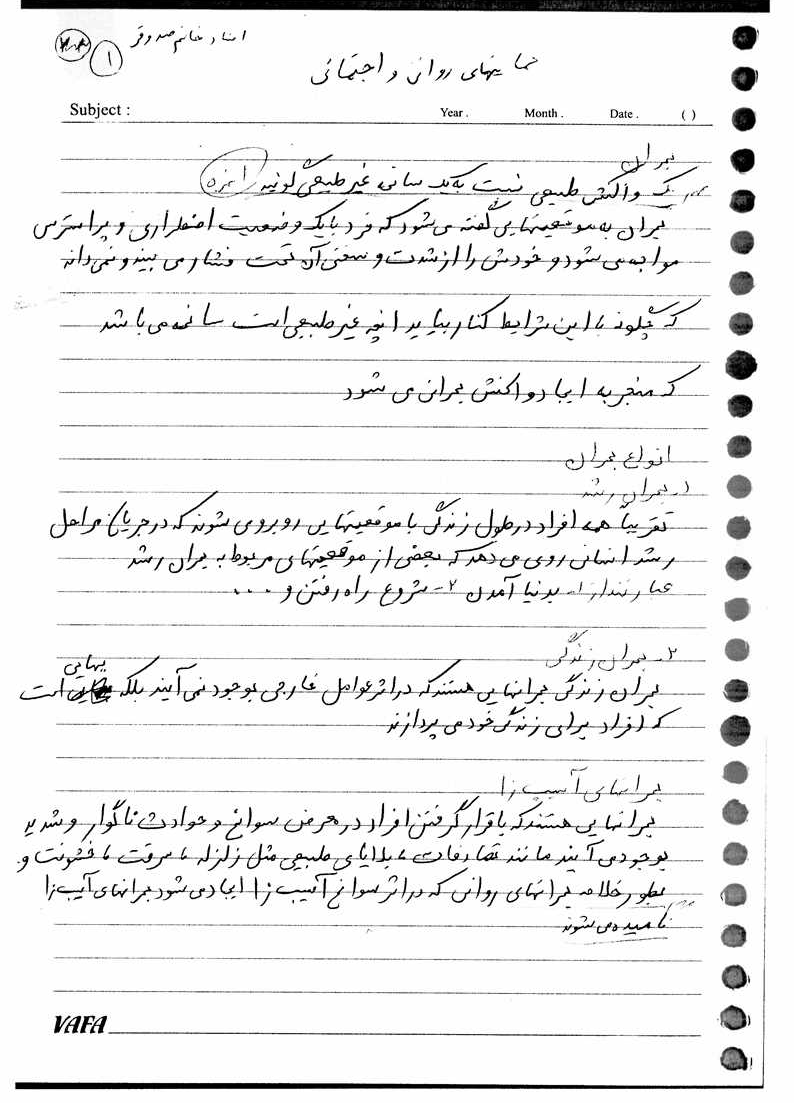 استاد خانم صدوقی
۱
حمایتهای روانی و اجتماعی
Subject :
Year .
Month .
Date .
( )
بحران
یک واکنش طبیعی نسبت به یک سانحه غیر طبیعی گویند
بحران به موقعیتهایی گفته می‌شود که فرد با یک وضعیت اضطراری و پر استرس
مواجه می شود و خودش را از شدت و سختی آن تحت فشار می بیند و نمی داند
که چگونه با این شرایط کنار بیاید آنچه غیر طبیعی است سانحه می باشد
که منجر به ایجاد واکنش بحرانی می شود
انواع بحران
۱- بحران رشد
تقریباً همه افراد در طول زندگی با موقعیتهایی روبروی شوند که در جریان مراحل
رشد انسانی روی می دهد که بعضی از موقعیتهای مربوط به بحران رشد
عبارتنداز ۱- بدنیا آمدن ۲- شروع راه رفتن و ...
۲- بحران زندگی
بحران زندگی بحرانهایی هستند که در اثر عوامل خارجی بوجود نمی آیند بلکه بهایی است
که افراد برای زندگی خود می پردازند
بحرانهای آسیب زا
بحرانهایی هستند که با قرار گرفتن افراد در معرض سوانح و حوادث ناگوار و شدید
بوجود می آیند مانند تصادفات ، بلایای طبیعی مثل زلزله ، سرقت ، خشونت و
بطور خلاصه بحرانهای روانی که در اثر سوانح آسیب زا ایجاد می شود بحرانهای آسیب زا
نامیده می شوند
VAFA